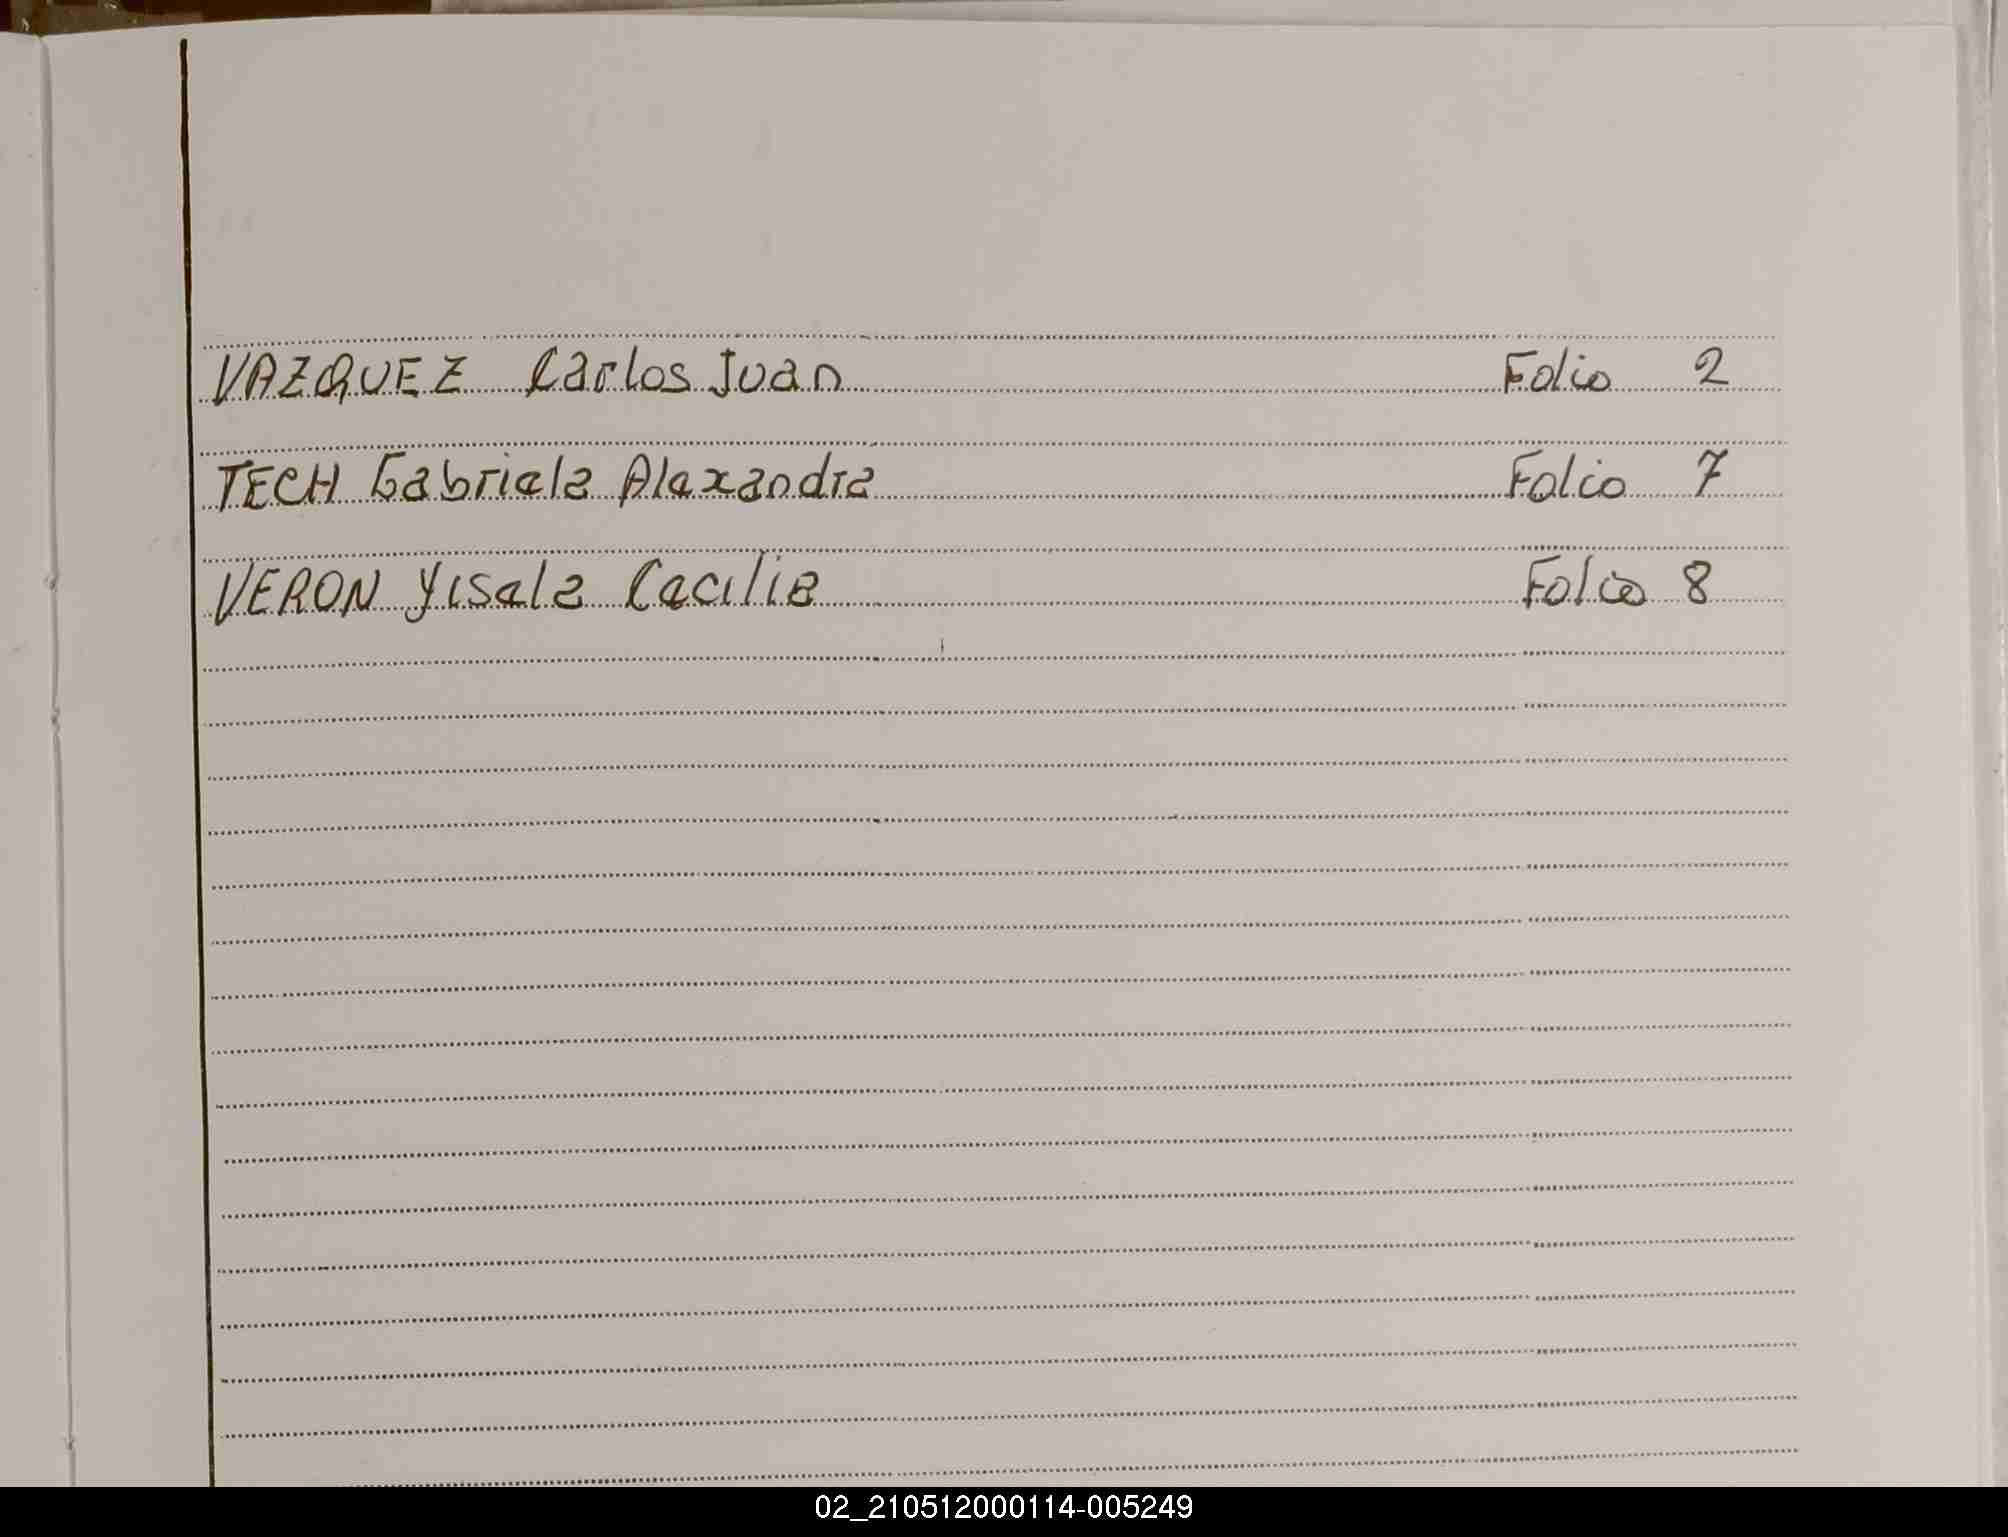 VAZQUEZ Carlos Juan Folio 2
TECH Gabriela Alexandra Folio 7
VERON Yisela Cecilia Folio 8
02_210512000114-005249